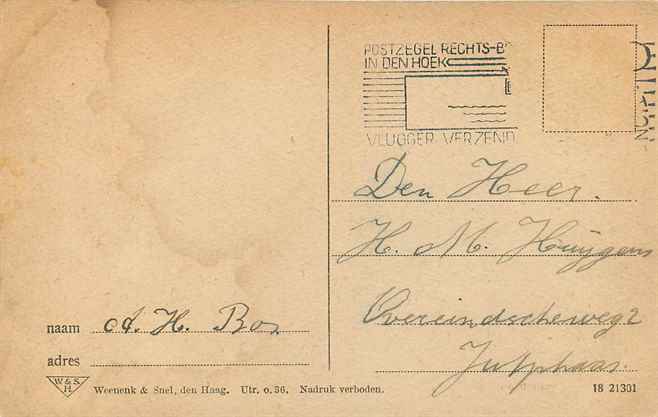 POSTZEGEL RECHTS-B
IN DEN HOEK
VLUGGER VERZEND
Den Heer.
H. M. Huÿgens
Overeindscheweg 2
Jutphaas.
naam A. H. Bos
adres
W & S.
H
Weenenk & Snel, den Haag. Utr. o. 36. Nadruk verboden.
18 21301